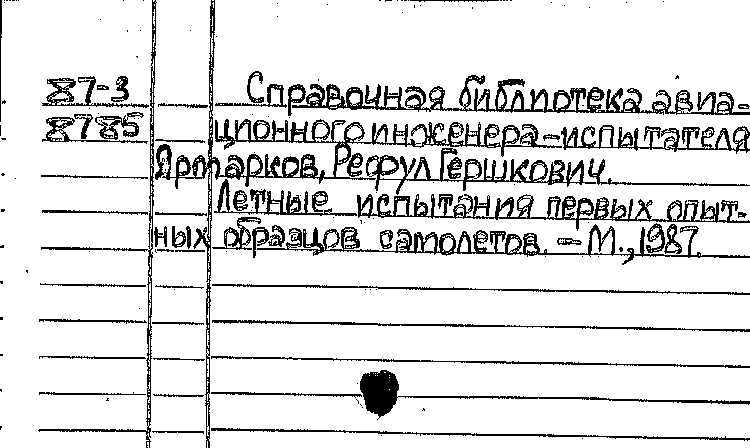 87-3 Справочная библиотека авиа-
8785 ционного инженера-испытателя
Ярмарков, Рефул Гершкович.
Летные испытания первых опыт-
ных образцов самолетов. – М., 1987.